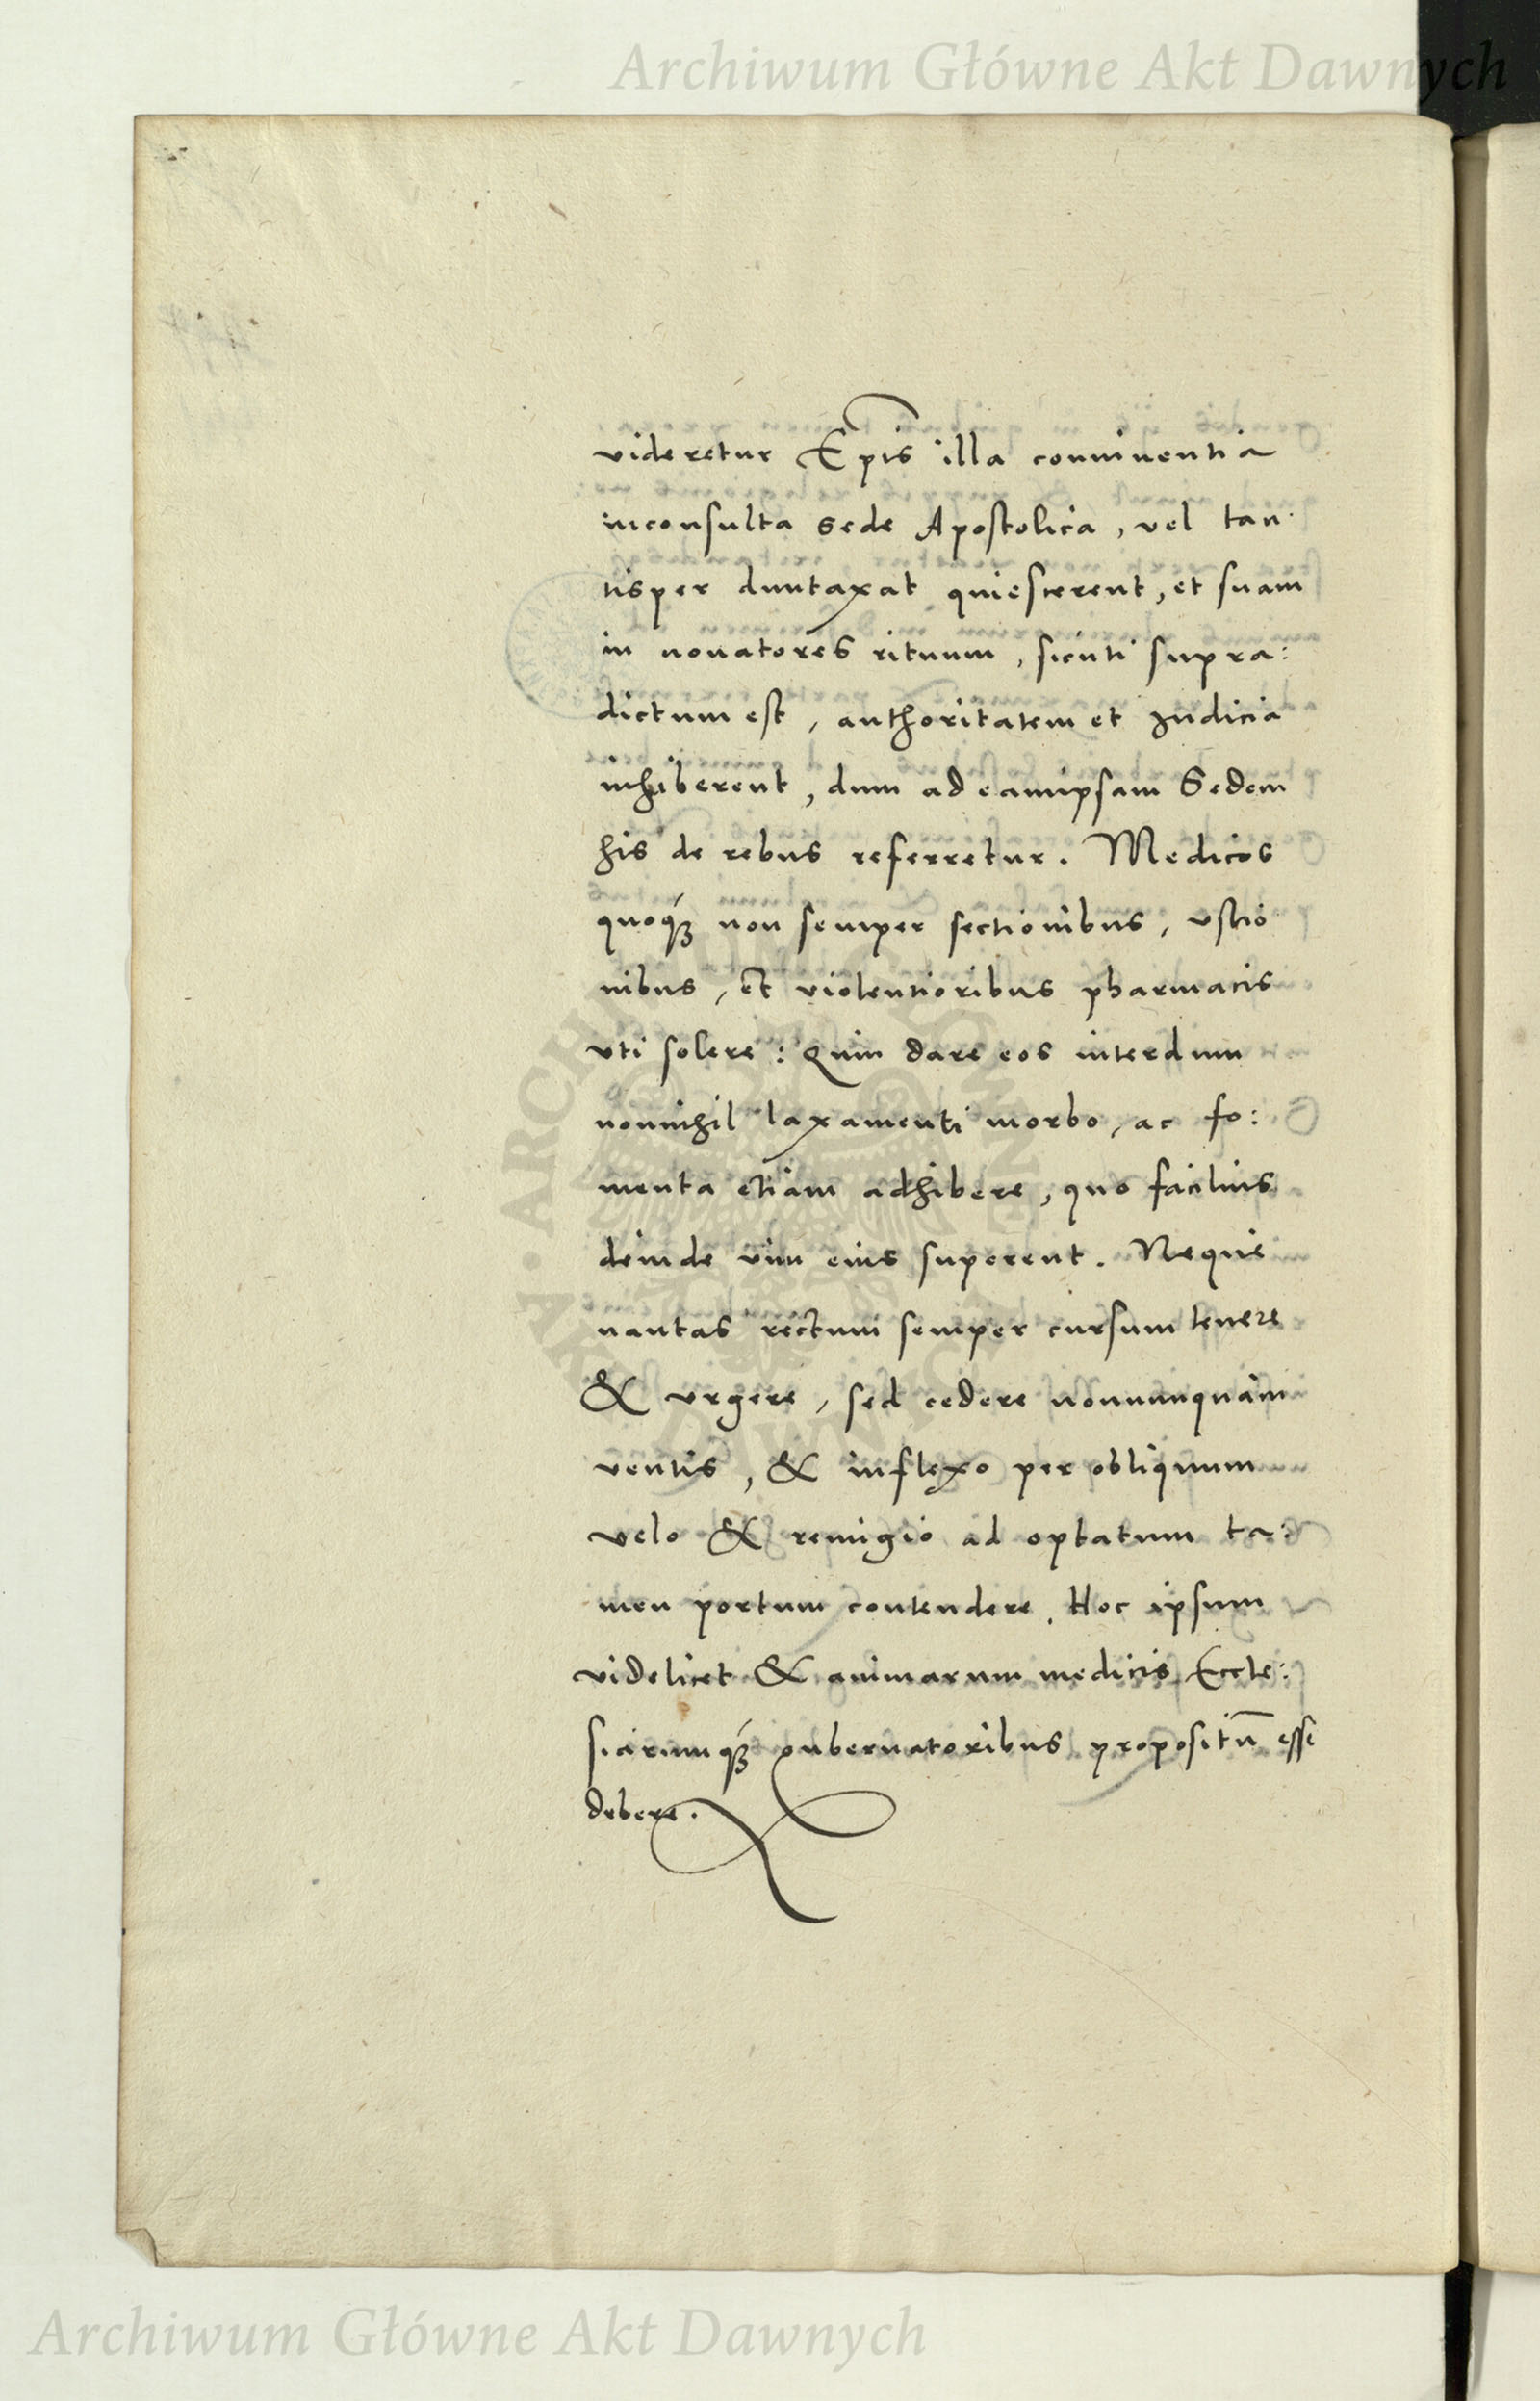 Archiwum Główne Akt Dawnych
videretur Ep̃is illa conniventia
inconsulta Sede Apostolica, vel tan
tisper duntaxat quiescerent, et suam
in novatores rituum, sicuti supra:
dictum est, authoritatem et Judicia
inhiberent, dum ad eamipsam Sedem
his de rebus referretur. Medicos
quoq́ꝫ non semper sectionibus, ustio
nibus, et violentioribus pharmacis
uti solere: Quin dare eos interdum
nonnihil laxamenti morbo, ac fo:
menta etiam adhibere, quo facilius
deinde vim eius superent. Neque
nautas rectum semper cursum tenere
& urgere, sed cedere nonnunquam
ventis, & inflexo per obliquum
velo & remigio ad optatum ta:
men portum contendere. Hoc ipsum
videlicet & animarum medicis Eccle:
siarumq́ꝫ gubernatoribus propositũ esse
debere.
Archiwum Główne Akt Dawnych